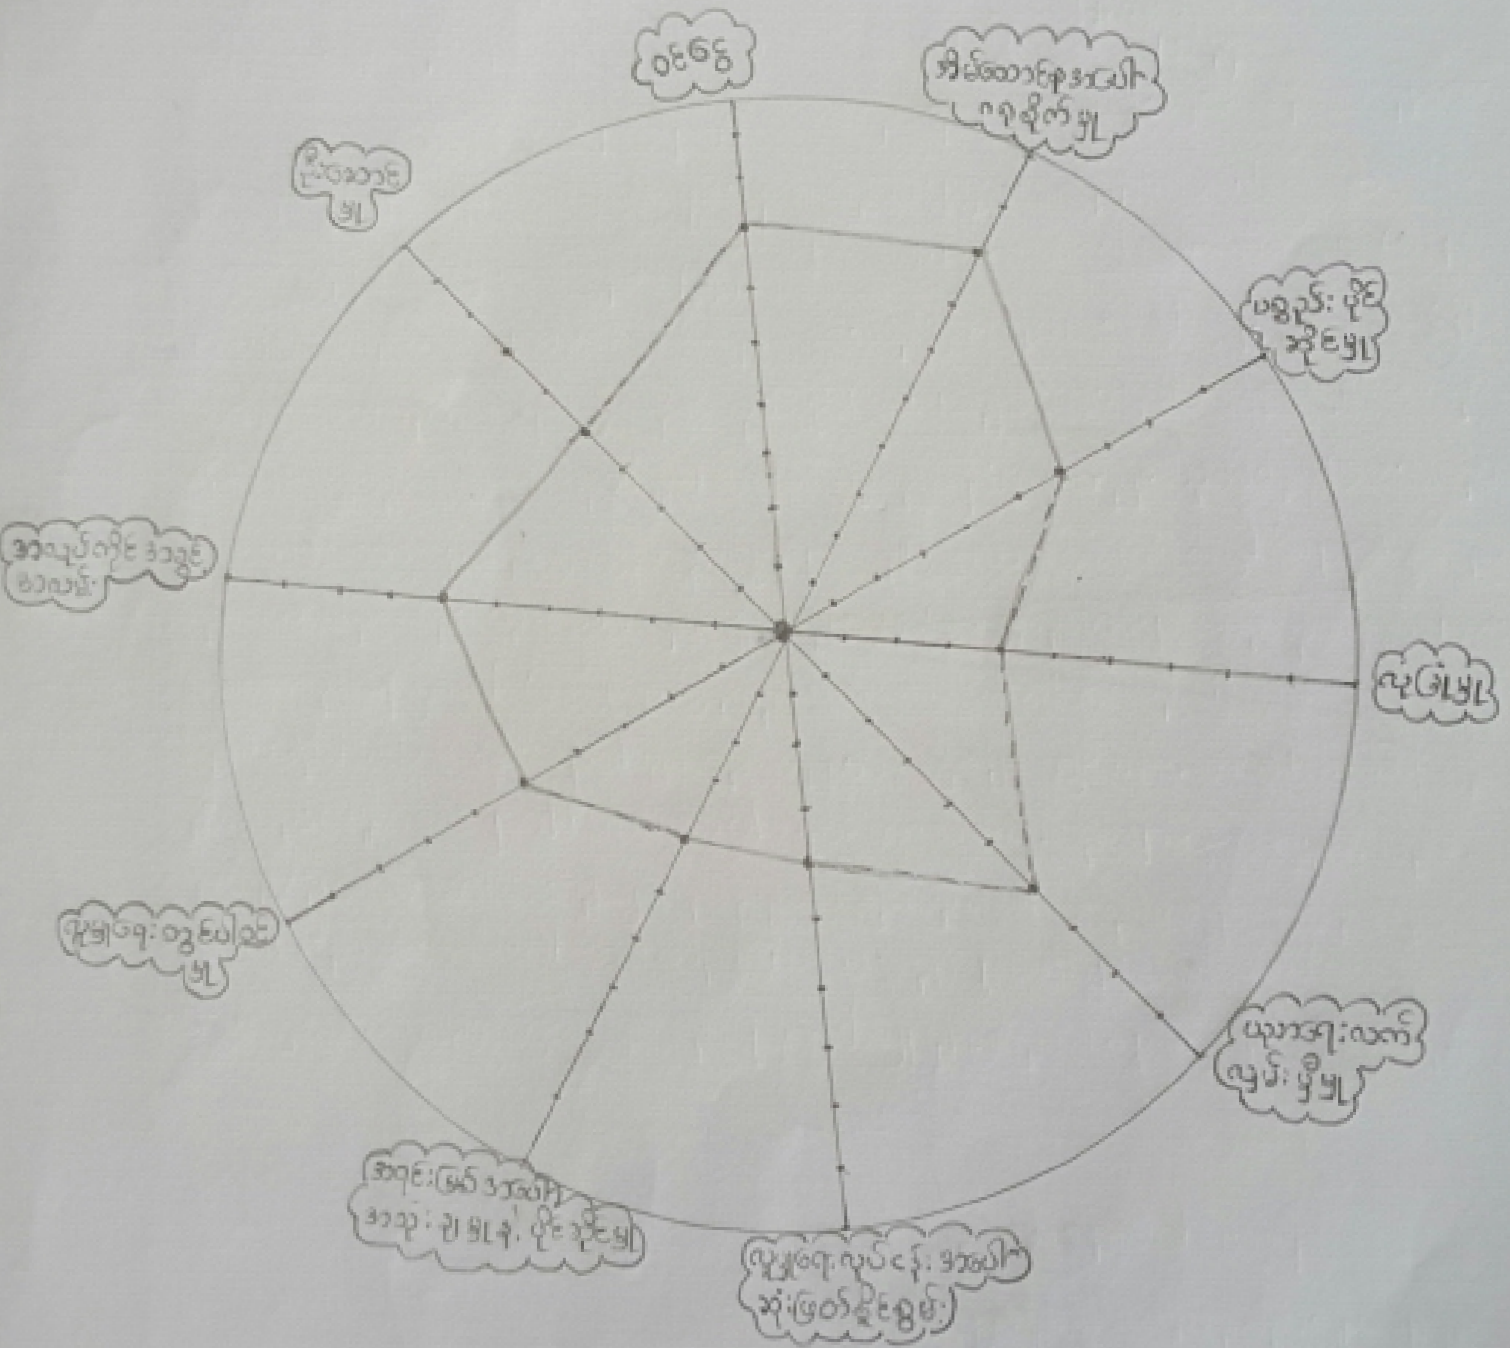 ဝင်ငွေ
အိမ်ထောင်စုအပေါ်
ဂရုစိုက်မှု
ပစ္စည်းပိုင်
ဆိုင်မှု
လုံခြုံမှု
ပညာရေးလက်
လှမ်းမှီမှု
လူမှုရေးလုပ်ငန်းအပေါ်
ဆုံးဖြတ်နိုင်စွမ်း
အရင်းမြစ်အပေါ်
အသုံးချမှုနှင့်ပိုင်ဆိုင်မှု
လူမှုရေးတွင်ပါဝင်
မှု
အလုပ်ကိုင်အခွင့်
အလမ်း
ဦးဆောင်
မှု